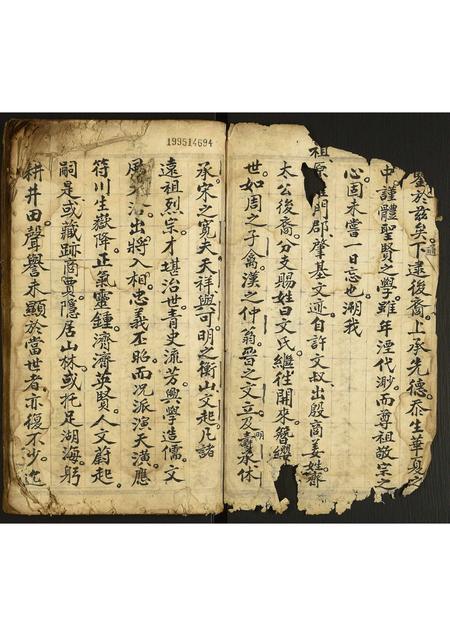 鑒於茲矣下逮後裔上承先德忝生華夏之
中謹體聖賢之學雖年湮代渺而尊祖敬宗之
心固未嘗一日忘也溯我
祖原雁門郡肇基文迹自許文叔出殷商姜姓齋
太公後裔分支賜姓曰文氏繼往開來簪纓
世如周之子禽漢之仲翁晉之文立及壽承休
明
承宋之寬夫天祥與可明之衡山文起凡諸
遠祖烈宗才堪治世青史流芳興學造儒文
風大治出將入相忠義丕昭而況派演天潢應
符川生嶽降正氣靈鍾濟濟英賢人文蔚起
嗣是或藏跡商賈隱居山林或托足湖海躬
耕井田聲譽未顯於當世者亦復不少迄
199514694